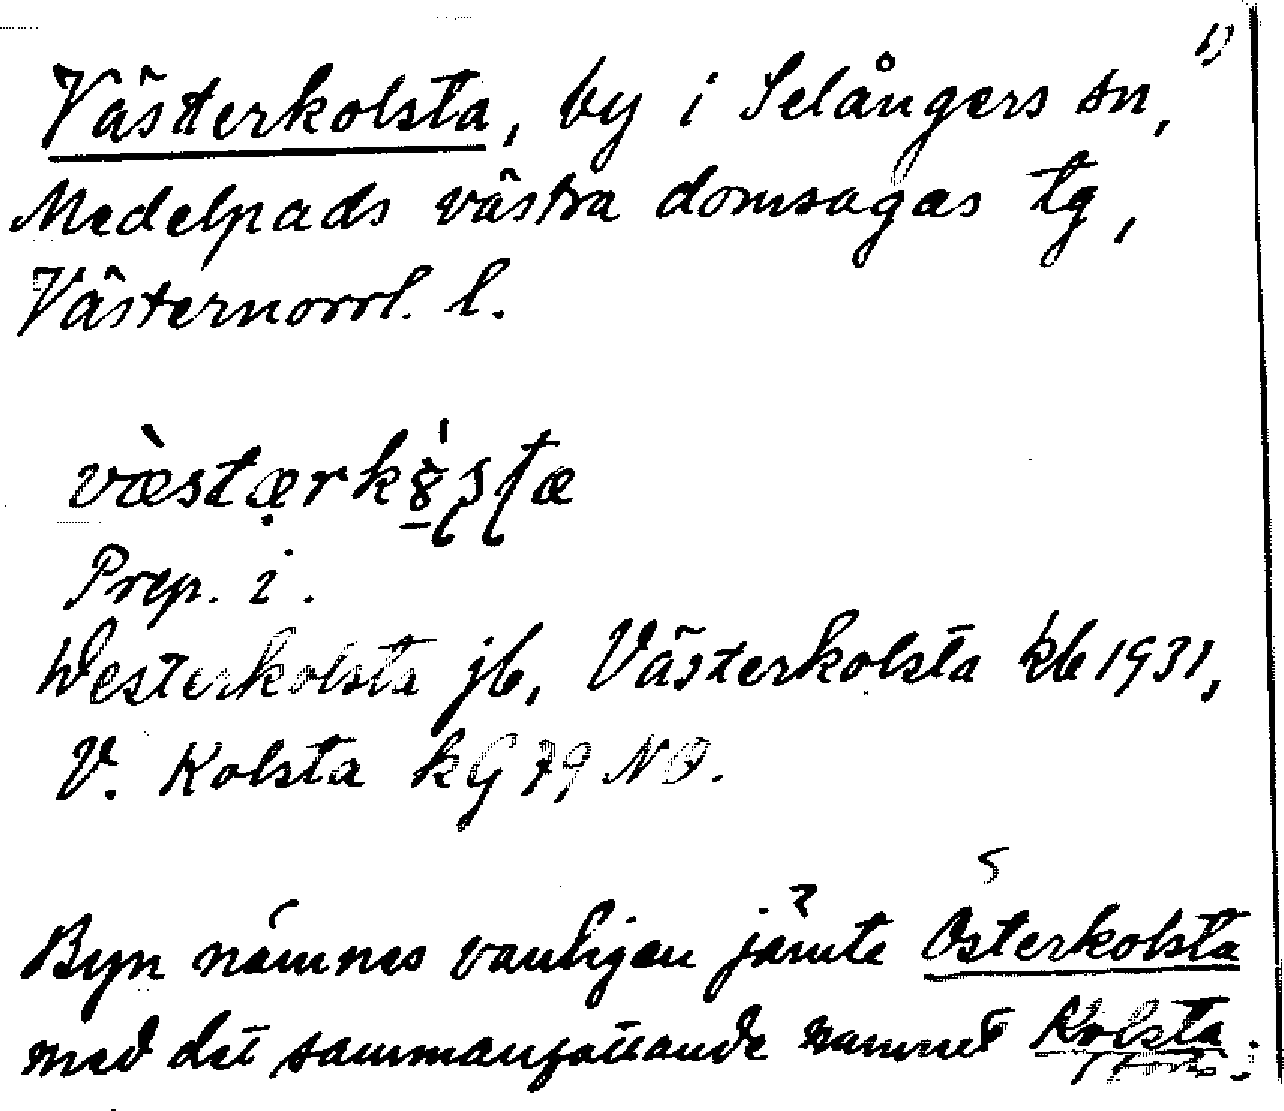 1)
Västerkolsta, by i Selångers sn,
Medelpads västra domsagas tg,
Västernorrl. l.
Prep. i.
Westerkolsta jb, Västerkolsta kb 1931,
V. Kolsta kG 79 NO.
Byn nämnes vanligen jämte Österkolsta
med det sammanfattande namnet Kolsta.